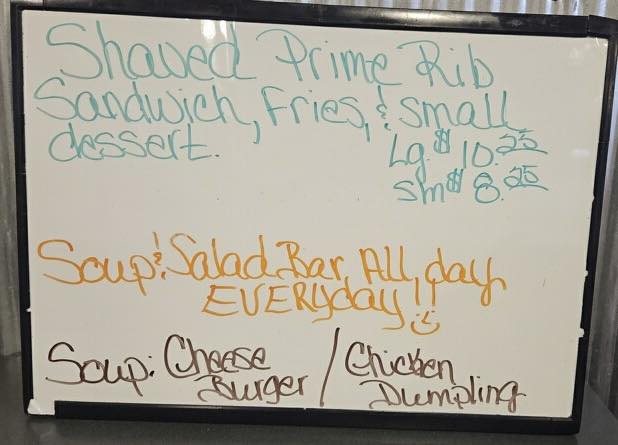 Shaved Prime Rib
Sandwich, Fries, & small
dessert.
Lg. $10.25
sm $8.25
Soup & Salad Bar All day
EVERyday!!
Soup: Cheese Burger / Chicken Dumpling